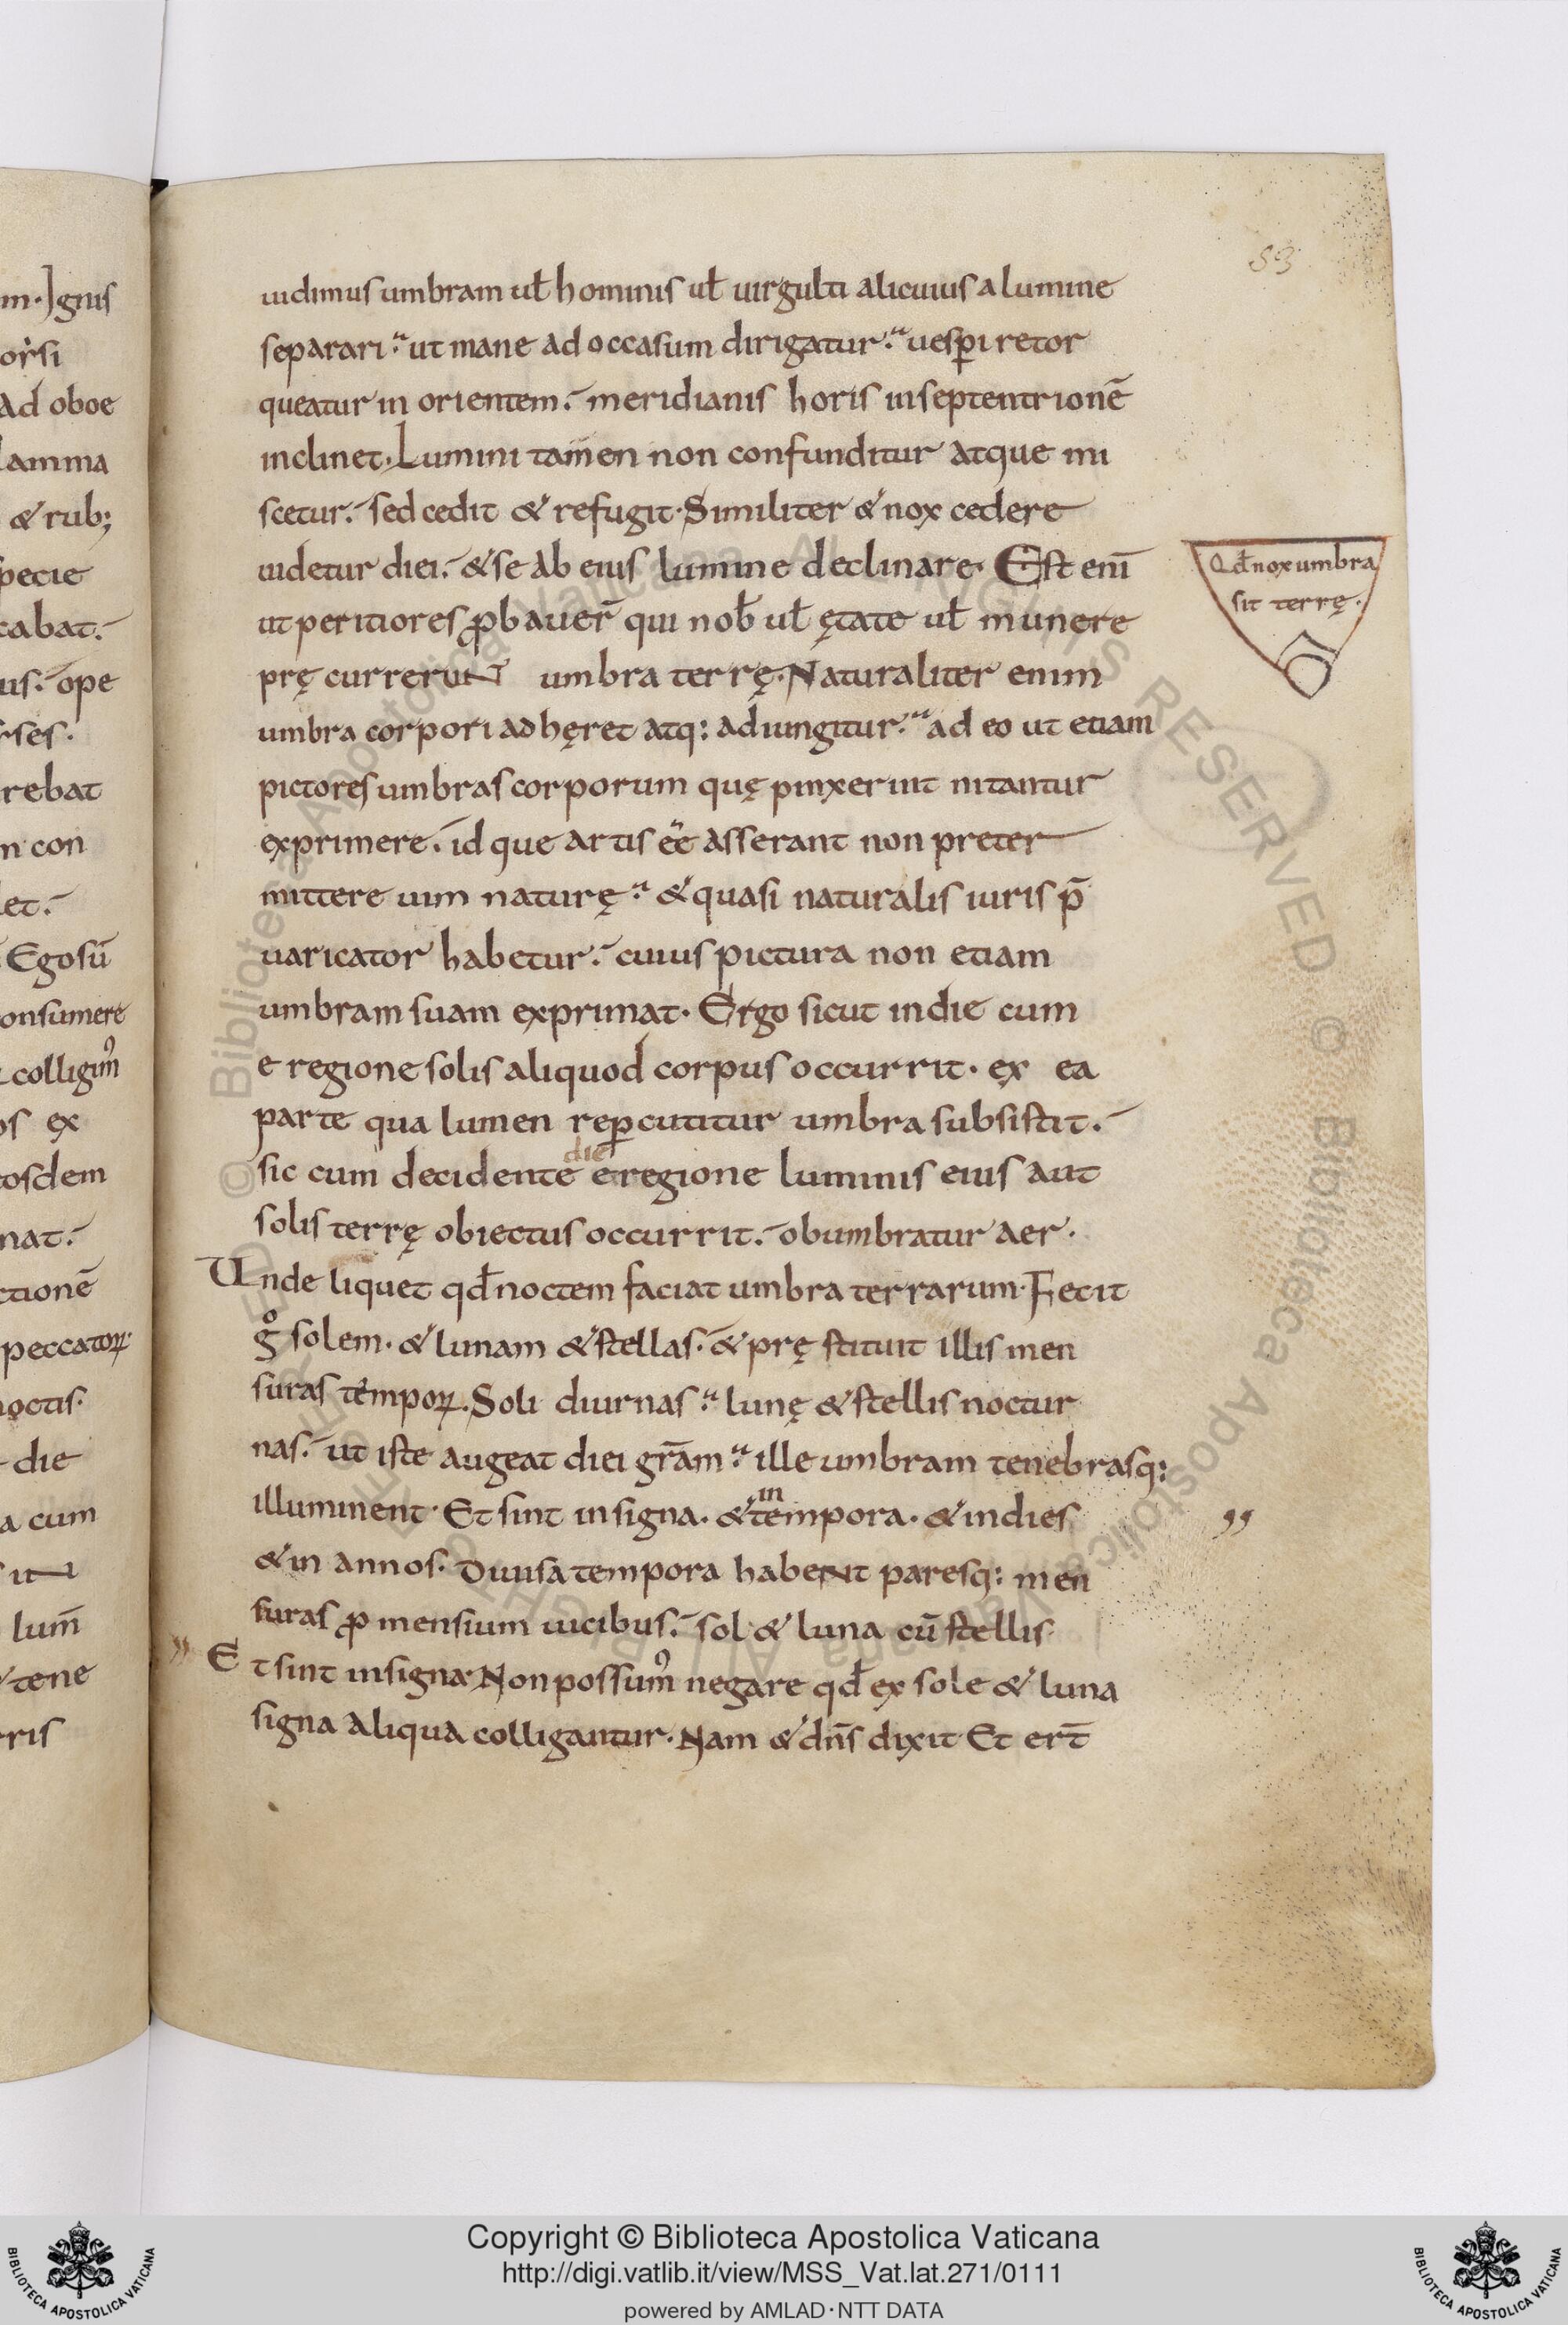 m·Ignis
orsi
Ad oboe
lamma
& rub;
specie
cabat.
us. ope
rses.
rebat
n con
let.
Ego sū
onsumere
colligimꝰ
os ex
cosdem
nat.
ctionē
peccatoꝝ·
noctis·
die
a cum
lum̄
tene
rris
53
uidimus umbram ul̄ hominis ul̄ uirgulti alicuius a lumine
separari. ut mane ad occasum dirigatur. uesꝑi retor
queatur in orientem. meridianis horis in septentrionē
inclinet. Lumini tamen non confunditur atque mi
scetur. sed cedit & refugit. Similiter & nox cedere
uidetur diei. & se ab eius lumine declinare. Est enī
ut peritiores ꝓbauer̄ qui nob̄ ul̄ ętate ul̄ munere
pręcurrerunt umbra terrę. Naturaliter enim
umbra corpori adhęret atq: adiungitur. adeo ut etiam
pictores umbras corporum quę pinxerint nitantur
exprimere. idque artis eē asserant non preter
mittere uim naturę. & quasi naturalis iuris p̄
uaricator habetur. cuius pictura non etiam
umbram suam exprimat. Ergo sicut in die cum
e regione solis aliquod corpus occurrit. ex ea
parte qua lumen reꝑcutitur umbra subsistit.
die
sic cum decidente e regione luminis eius aut
solis terrę obiectus occurrit. obumbratur aer.
Unde liquet qd̄ noctem faciat umbra terrarum. Fecit
gͦ solem. & lunam & stellas. & pręstituit illis men
suras tempoꝝ. Soli diurnas. lunę & stellis noctur
nas. ut iste augeat diei gr̄am. ille umbram tenebrasq:
in
illuminent. Et sint in signa. & tempora. & in dies
& in annos. Diuisa tempora habent paresq: men
suras ꝓ mensium uicibus. sol & luna cū stellis
Et sint in signa. Non possumꝰ negare qd̄ ex sole & luna
signa aliqua colligantur. Nam & dn̄s dixit Et er̄t
Qd̄ nox umbra
sit terrę.
© Biblioteca Apostolica Vaticana ALL RIGHTS RESERVED © Biblioteca Apostolica Vaticana ALL RIGHTS RESERVED
Copyright © Biblioteca Apostolica Vaticana
http://digi.vatlib.it/view/MSS_Vat.lat.271/0111
powered by AMLAD·NTT DATA
BIBLIOTECA APOSTOLICA VATICANA
BIBLIOTECA APOSTOLICA VATICANA